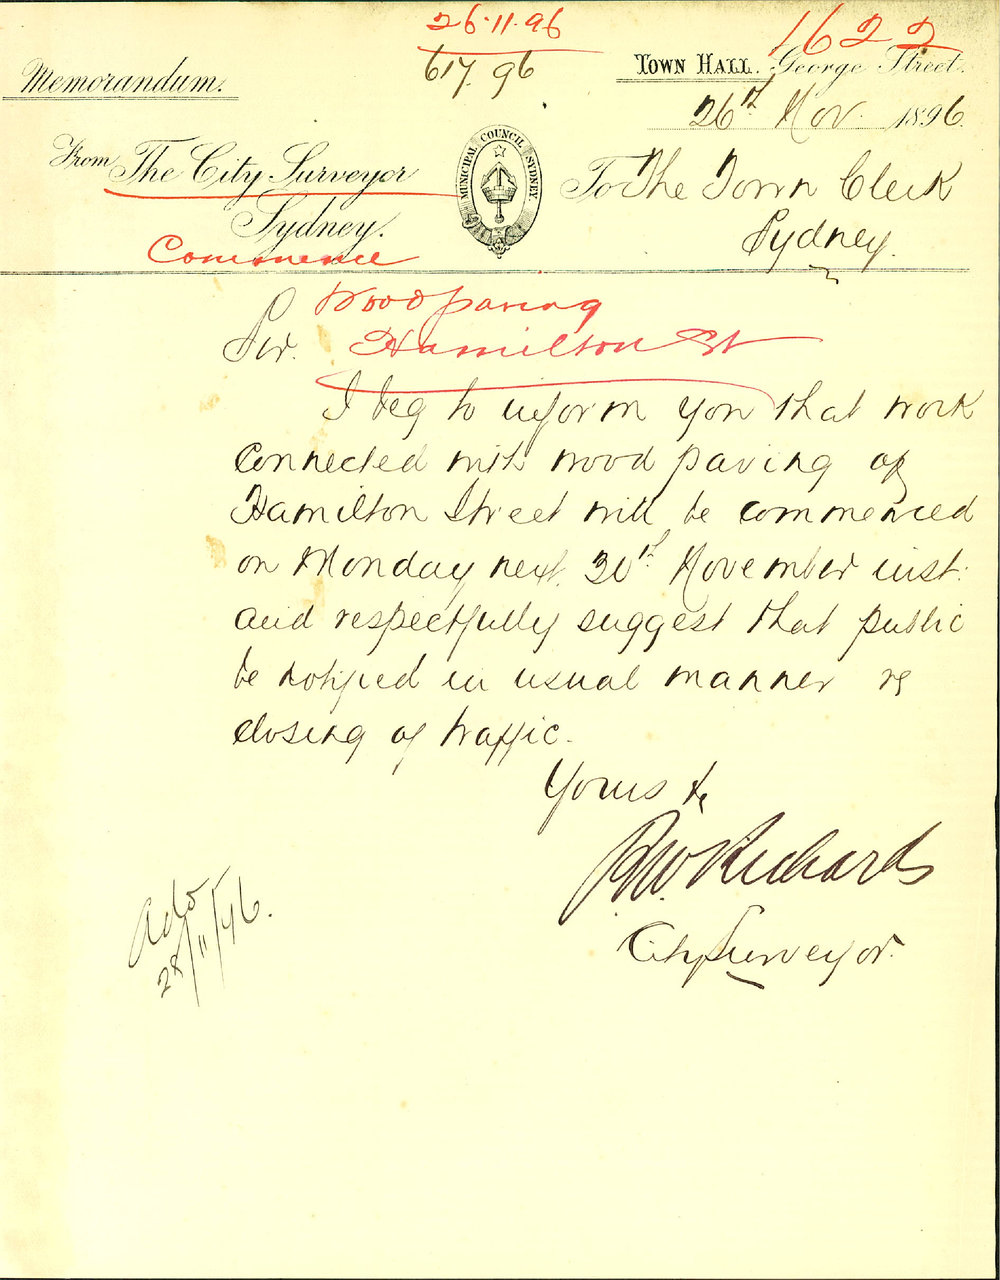 26.11.96
1622
617.96
Memorandum.
TOWN HALL. George Street.
26th Nov. 1896.
From The City Surveyor
Sydney.
MUNICIPAL COUNCIL SYDNEY.
To The Town Clerk
Sydney.
Commence
Woodpaving
Sir. Hamilton St
I beg to inform you that work
connected with wood paving of
Hamilton Street will be commenced
on Monday next 30th November inst.
and respectfully suggest that public
be notified in usual manner re
closing of traffic.
Yours &c
R.W. Richards
City Surveyor.
28/11/96.